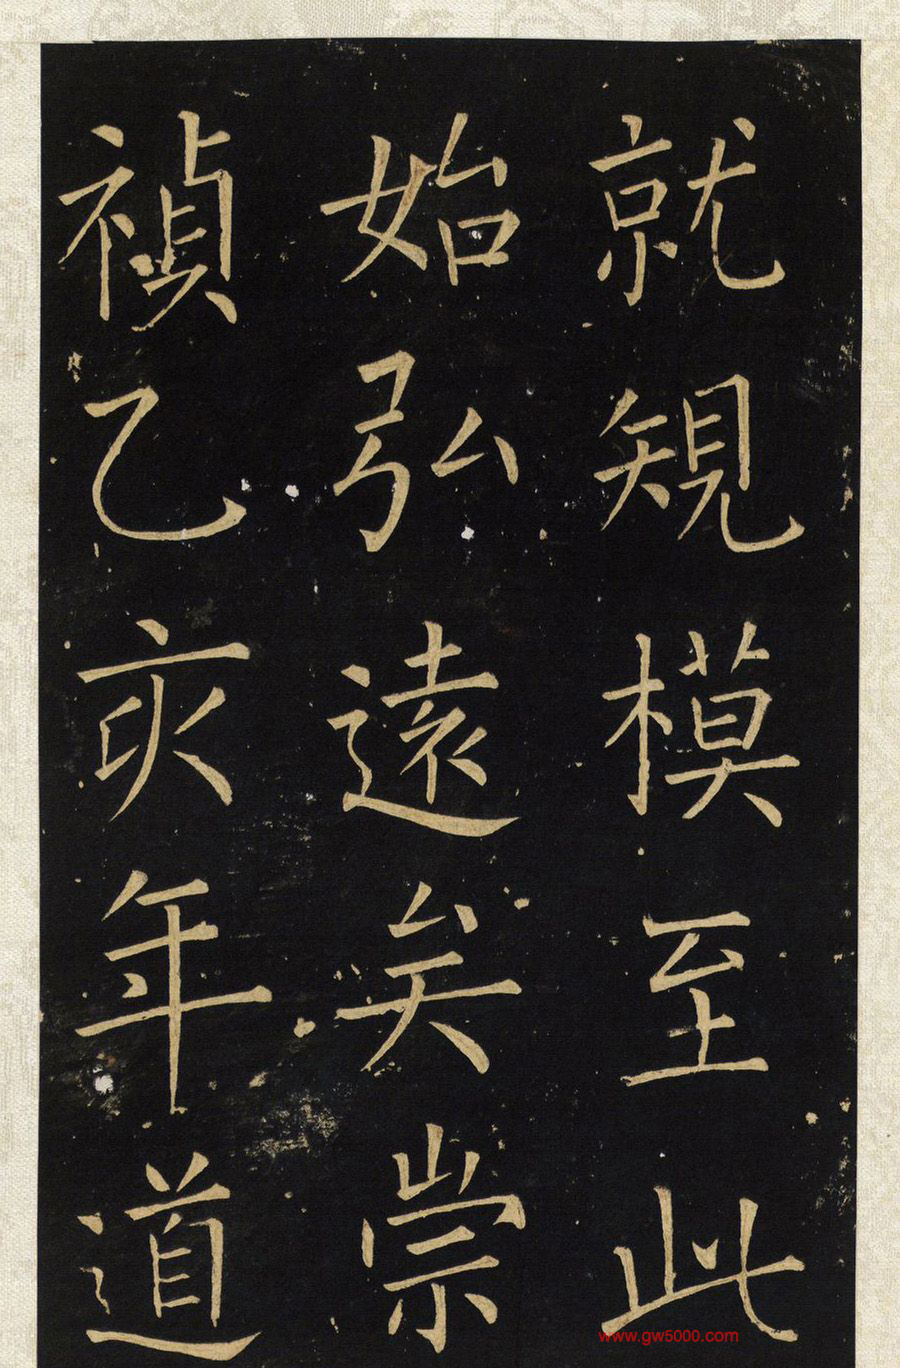 就規模至此
始弘遠矣崇
禎乙亥年道
www.gw5000.com